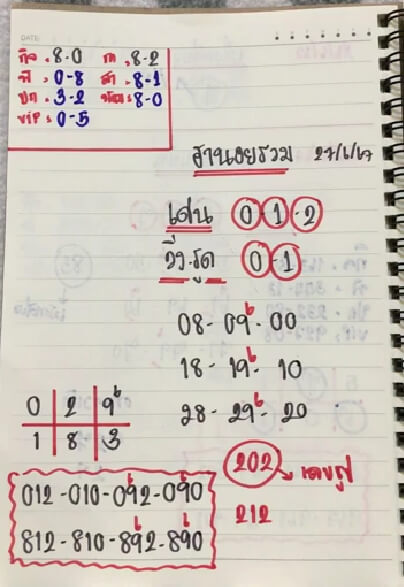 DATE
กิจ . 8-0 ก . 8-2
พ . 0-8 ส . 8-1
ปก . 3-2 พัฒ : 8-0
VIP : 0-5
ฮานอยรวม 27/6/67
เด่น 0-1-2
วิ่ง.รูด 0-1
08-09-00
18-19-10
28-29-20
0 2 9
1 8 3
202
212
012-010-092-090
812-810-892-890